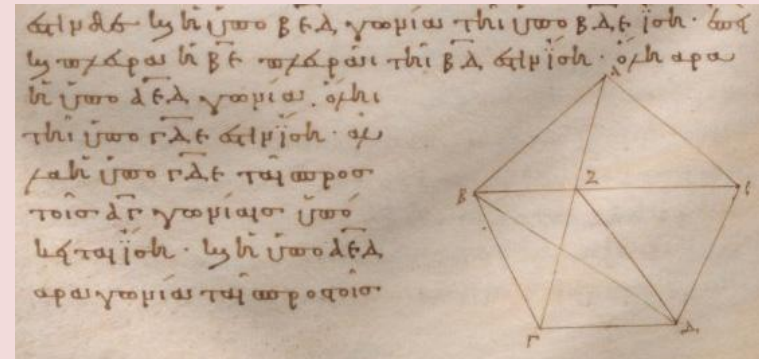 ἐστὶν δὲ καὶ ἡ ὑπὸ ΒΕΔ γωνία τῆι ὑπὸ ΒΔΕ ἴση· ἐπεὶ
καὶ πλευρὰ ἡ ΒΕ πλευρᾶι τῆι ΒΔ ἐστὶν ἴση· ὅλη ἄρα
ἡ ὑπὸ ΑΕΔ γωνία ὅληι
τῆι ὑπὸ ΓΔΕ ἐστὶν ἴση· ἀλ
λὰ ἡ ὑπὸ ΓΔΕ ταῖς προσ
τοῖς ΑΓ γωνίαις ὑπό
κειται ἴση· καὶ ἡ ὑπὸ ΑΕΔ
ἄρα γωνία ταῖς προς τοῖς
Α
Β Ζ Ε
Γ Δ